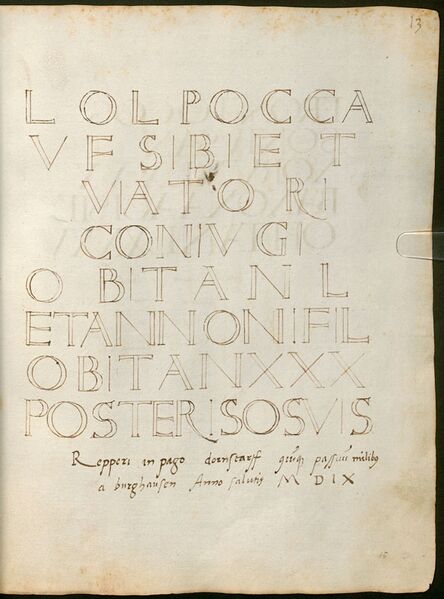 13
L OL POCCA
V F SIBI ET
VIATORI
CONIVGI
OBIT AN L
ET ANNONI FIL
OBIT AN XXX
POSTERISOSVIS
Repperi in pago dornstarff quīq passuū milibꝰ
a burghausen Anno salutis M D IX